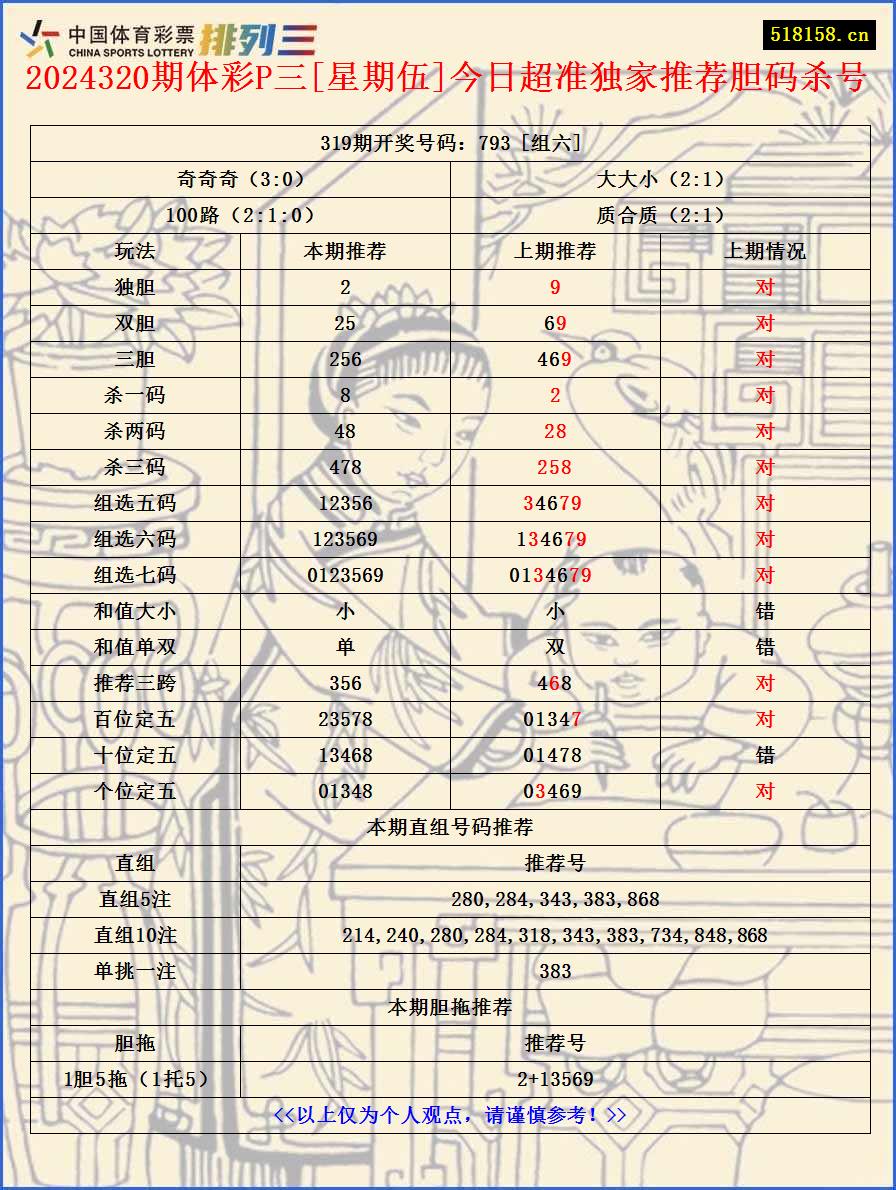 中国体育彩票
CHINA SPORTS LOTTERY
排列三
518158.cn
2024320期体彩P三[星期伍]今日超准独家推荐胆码杀号
319期开奖号码：793 [组六]
奇奇奇（3:0） 大大小（2:1）
100路（2:1:0） 质合质（2:1）
玩法 本期推荐 上期推荐 上期情况
独胆 2 9 对
双胆 25 69 对
三胆 256 469 对
杀一码 8 2 对
杀两码 48 28 对
杀三码 478 258 对
组选五码 12356 34679 对
组选六码 123569 134679 对
组选七码 0123569 0134679 对
和值大小 小 小 错
和值单双 单 双 错
推荐三跨 356 468 对
百位定五 23578 01347 对
十位定五 13468 01478 错
个位定五 01348 03469 对
本期直组号码推荐
直组 推荐号
直组5注 280,284,343,383,868
直组10注 214,240,280,284,318,343,383,734,848,868
单挑一注 383
本期胆拖推荐
胆拖 推荐号
1胆5拖（1托5） 2+13569
<<以上仅为个人观点，请谨慎参考！>>